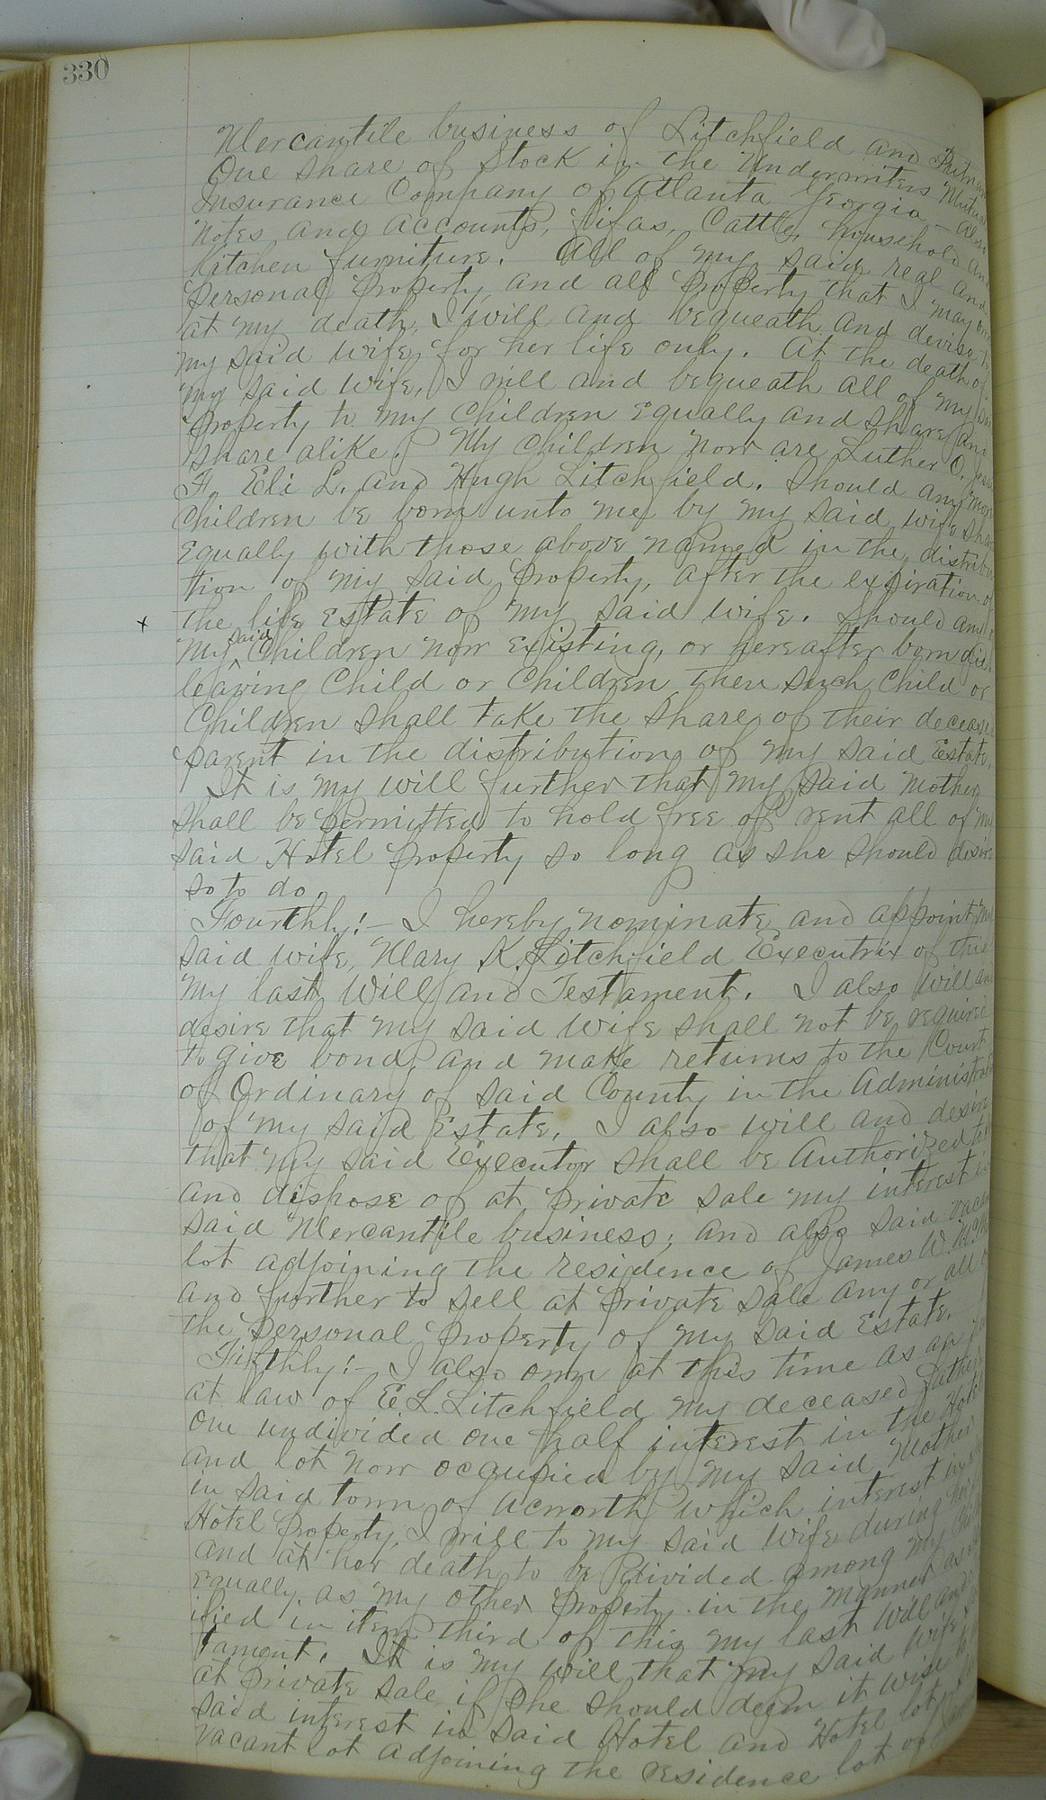 330
Mercantile business of Litchfield and
One share of stock in the Underwriters Mutual
Insurance Company of Atlanta Georgia – also
Notes and accounts, fifas, Cattle, household and
Kitchen furniture. All of my said real and
personal property, and all property that I may own
at my death, I will and bequeath and devise to
my said wife, for her life only. At the death of
my said wife, I will and bequeath all of my said
property to my Children Equally and share and
share alike. My children now are Luther O.
F. Eli L. and Hugh Litchfield. Should any more
Children be born unto me, by my said wife shall
Equally with those above named in the distribu
tion of my said property, after the expiration of
x the life Estate of my said wife. Should any of
my said Children now Existing, or hereafter born die
leaving Child or Children then such Child or
Children shall take the share of their deceased
parent in the distribution of my said Estate.
It is my will further that my said mother
shall be permitted to hold free of rent all of my
said Hotel property so long as she should desire
so to do.
Fourthly:– I hereby nominate and appoint my
said wife, Mary K. Litchfield Executrix of this
my last Will and Testament. I also will and
desire that my said wife shall not be required
to give bond, and make returns to the Court
of Ordinary of said County in the Administration
of my said Estate. I also will and desire
that my said Executor shall be Authorized to
and dispose of at private sale my interest in
said Mercantile business; and also said vacant
lot adjoining the residence of James W.
and further to sell at private sale any or all of
the personal property of my said Estate.
Fifthly:– I also own at this time as an
at law of E. L. Litchfield my deceased father
one undivided one half interest in the Hotel
and lot now occupied by my said Mother
in said town of Acworth which interest in
Hotel property, I will to my said wife during
and at her death to be divided among my
Equally, as my other property in the manner as
ified in item third of this my last Will and
tament. It is my will that my said wife
at private sale if she should deem it wise to
said interest in said Hotel and Hotel lot
vacant lot adjoining the residence lot of